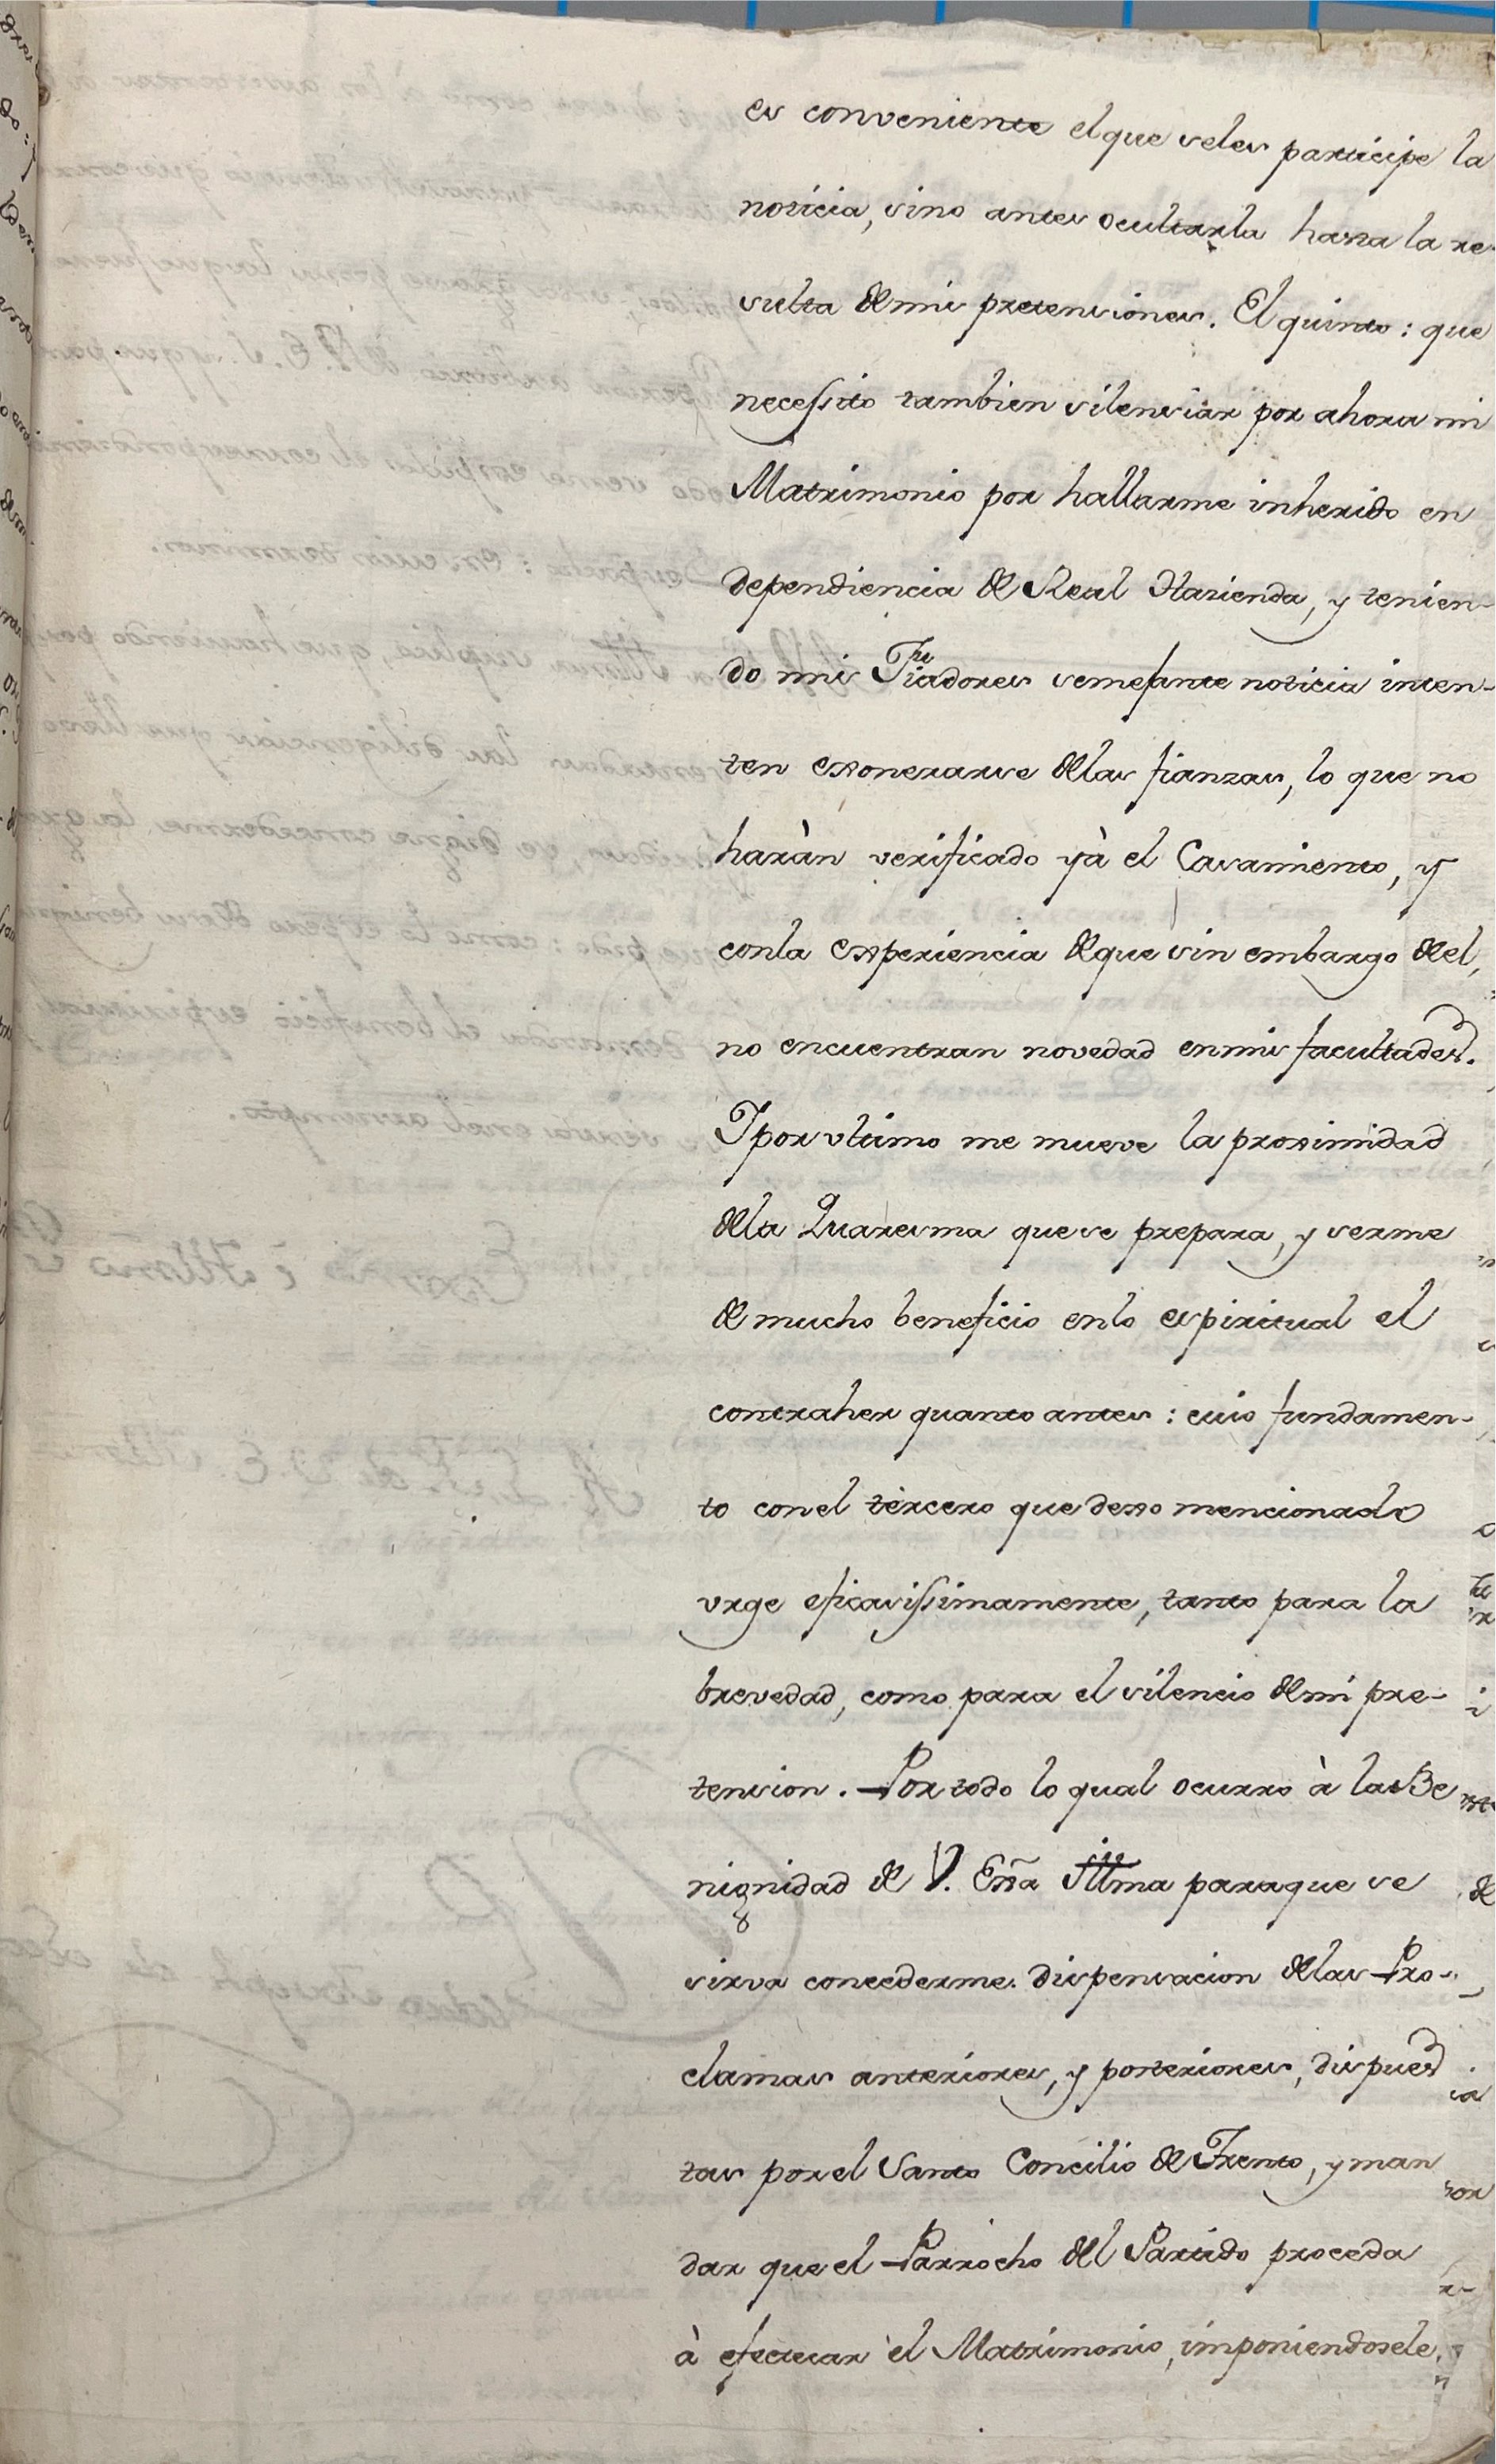 es conveniente elque seles participe la
noticia, sino antes ocultarla hasta la re-
sulta de mis pretensiones. El quinto: que
necessito tambien silensiar por ahora mi
Matrimonio por hallarme inherido en
dependiencia de Real Hazienda, y tenien-
do mis Fiadores semejante noticia inten-
ten exonerarse delas fianzas, lo que no
haràn verificado yà el Casamiento, y
conla experiencia deque sin embargo del,
no encuentran novedad enmis facultades.
Y por vltimo me mueve la proximidad
dela Quaresma quese prepara, y serme
de mucho beneficio enlo espiritual el
contraher quanto antes: cuio fundamen-
to conel tercero que dexo mencionado
vrge eficasissimamente, tanto para la
brevedad, como para el silencio demi pre-
tension. Por todo lo qual ocurro à la Be
nignidad de V. Exã Illma paraque se
sirva concederme dispensacion delas Pro-
clamas anteriores, y posteriores, dispues
tas por el Santo Concilio de Trento, y man
dar que el Parrocho del Partido proceda
à efectuar el Matrimonio, imponiendosele